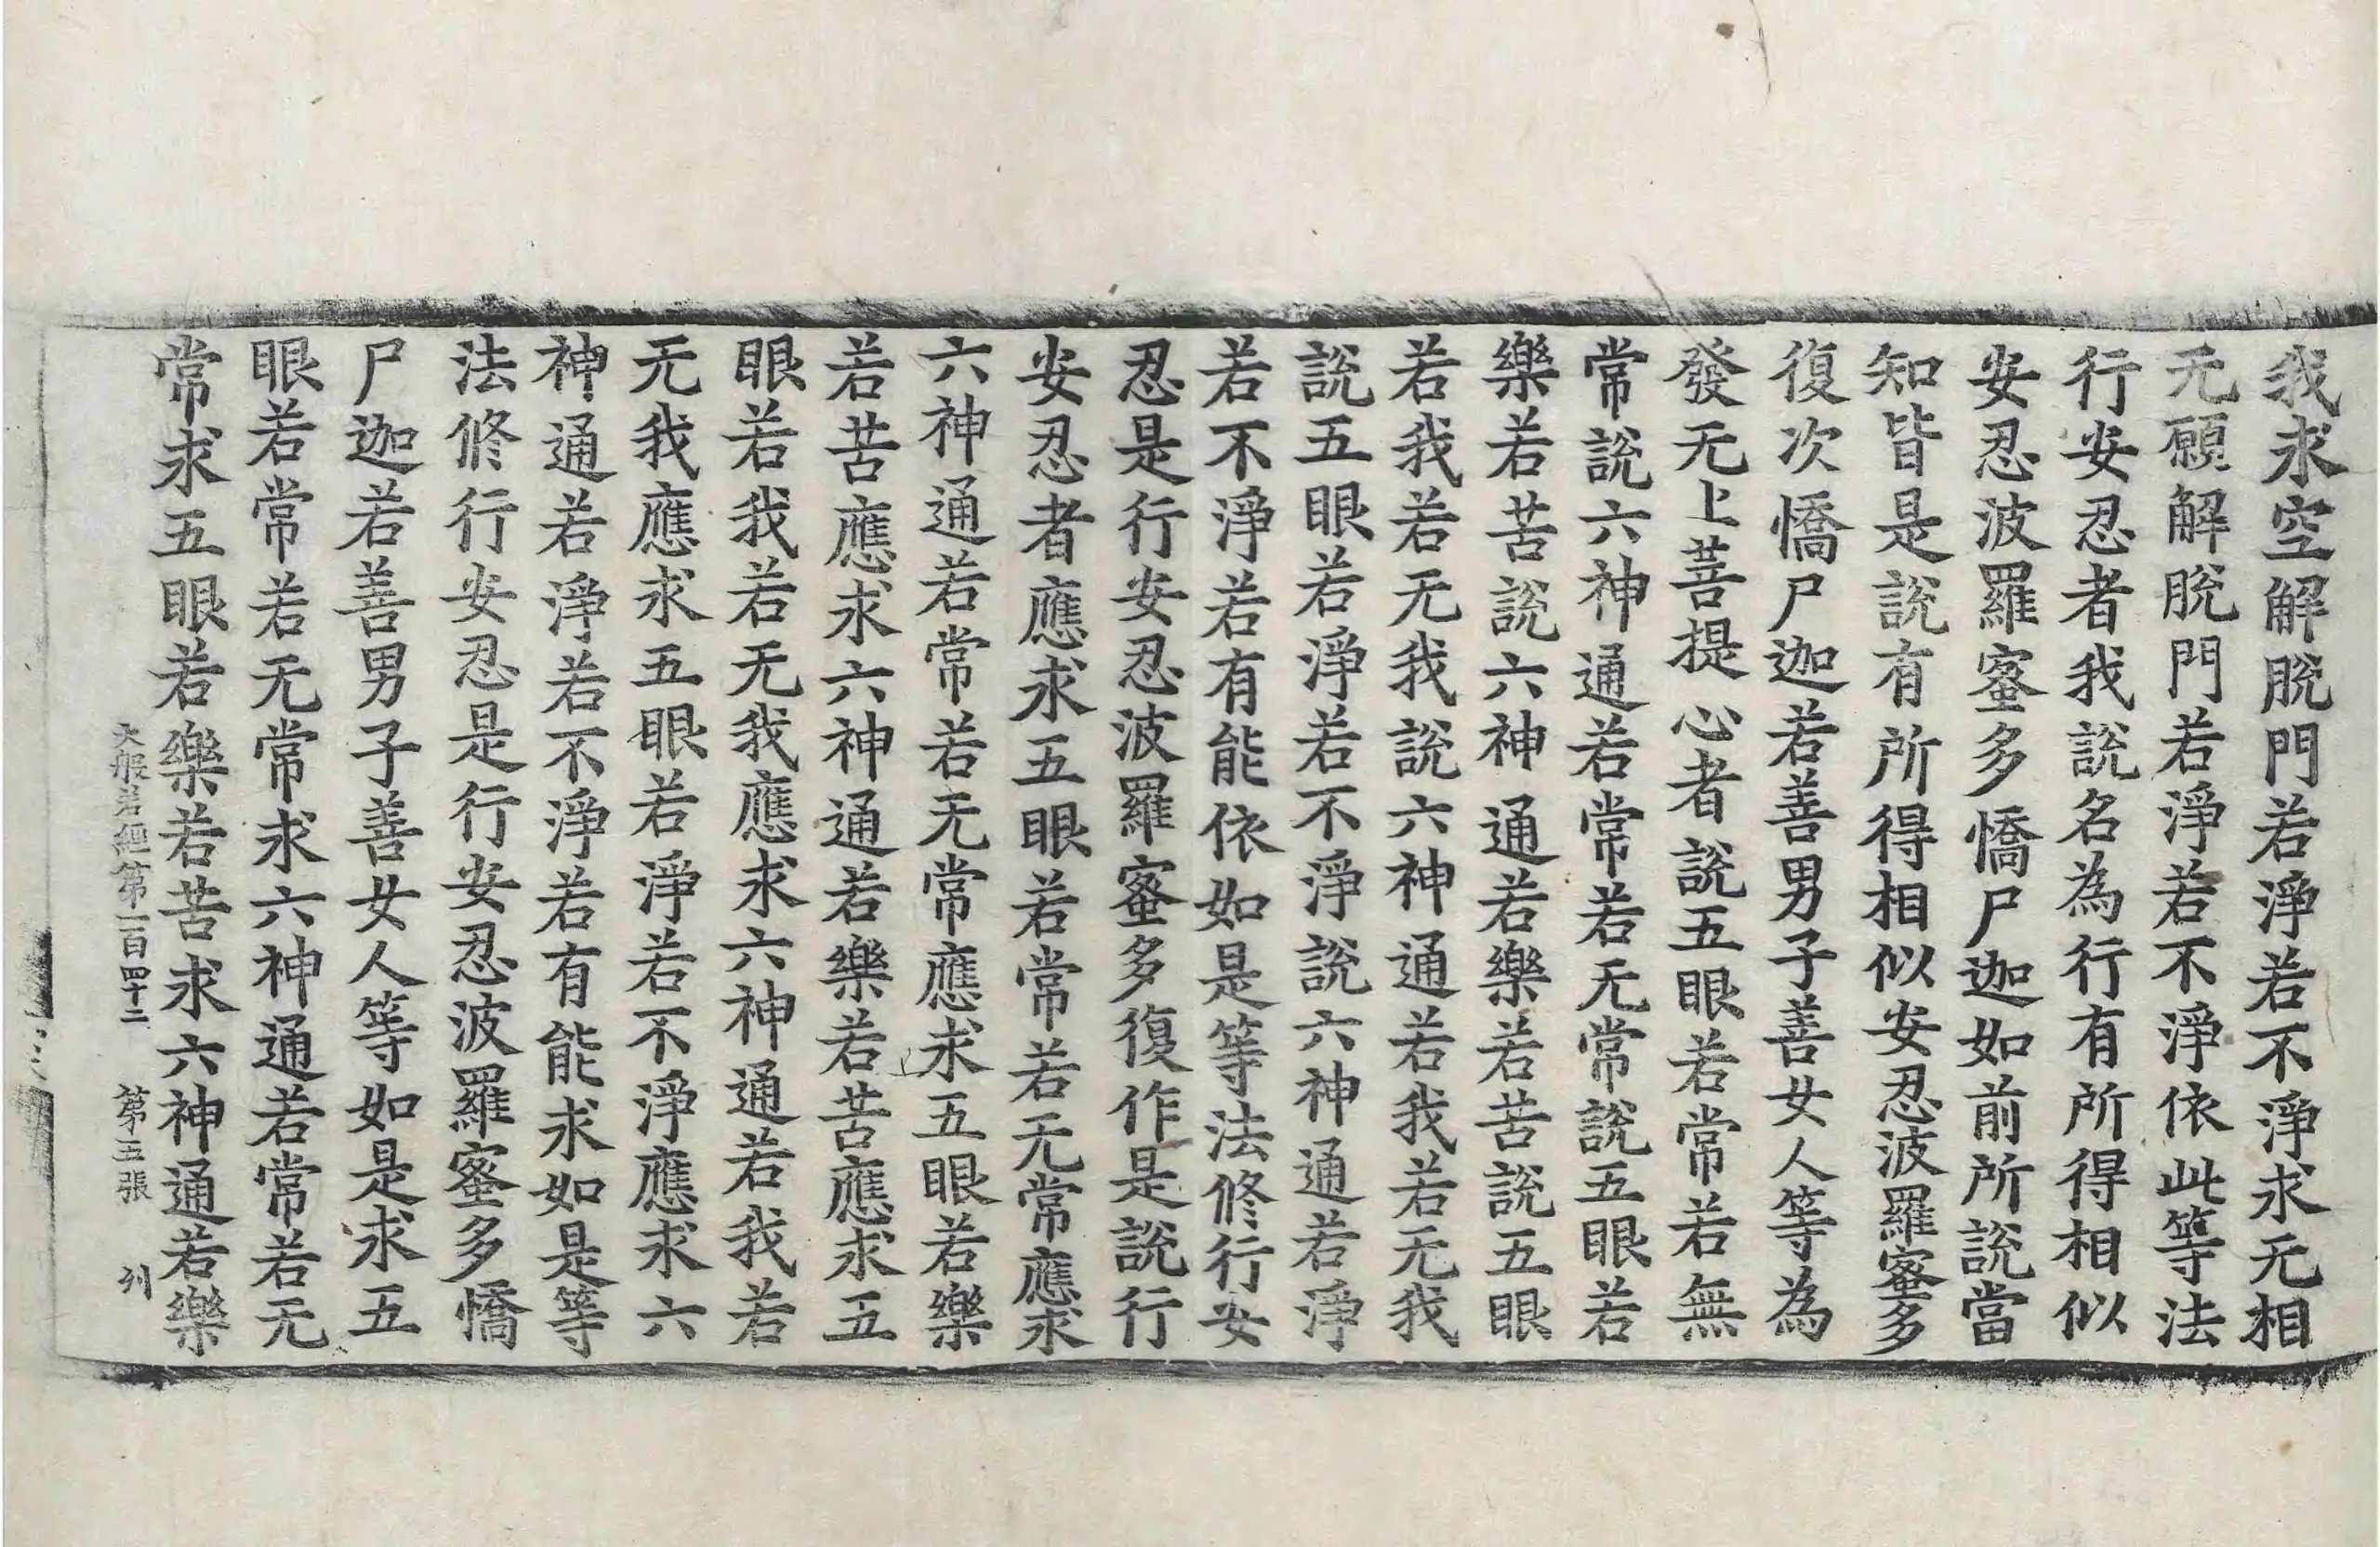 我求空解脫門若淨若不淨求无相
无願解脫門若淨若不淨依此等法
行安忍者我說名為行有所得相似
安忍波羅蜜多憍尸迦如前所說當
知皆是說有所得相似安忍波羅蜜多
復次憍尸迦若善男子善女人等為
發无上菩提心者說五眼若常若無
常說六神通若常若无常說五眼若
樂若苦說六神通若樂若苦說五眼
若我若无我說六神通若我若无我
說五眼若淨若不淨說六神通若淨
若不淨若有能依如是等法修行安
忍是行安忍波羅蜜多復作是說行
安忍者應求五眼若常若无常應求
六神通若常若无常應求五眼若樂
若苦應求六神通若樂若苦應求五
眼若我若无我應求六神通若我若
无我應求五眼若淨若不淨應求六
神通若淨若不淨若有能求如是等
法修行安忍是行安忍波羅蜜多憍
尸迦若善男子善女人等如是求五
眼若常若无常求六神通若常若无
常求五眼若樂若苦求六神通若樂
大般若經第一百四十二 第五張 列